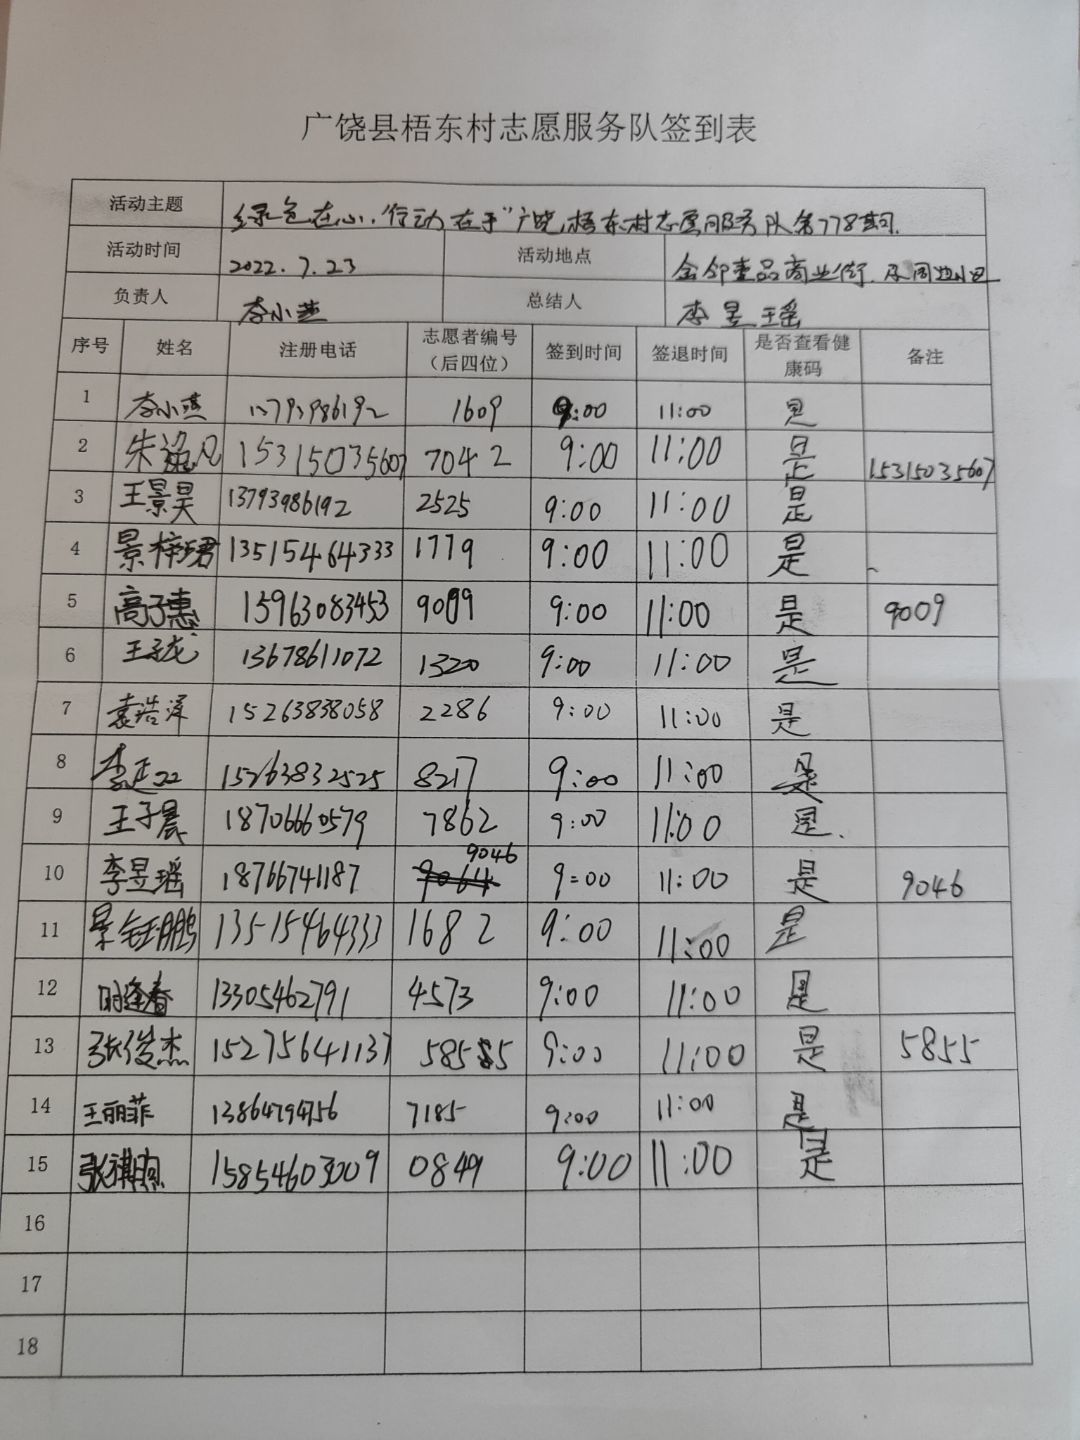 广饶县梧东村志愿服务队签到表
活动主题 绿色在心,行动在于"广饶梧东村志愿服务队第778期
活动时间 2022.7.23 活动地点 金邻壹品商业街及周边小区
负责人 李小燕 总结人 李昱瑶
序号 姓名 注册电话 志愿者编号(后四位) 签到时间 签退时间 是否查看健康码 备注
1 李小燕 13793986192 1609 9:00 11:00 是
2 朱 凡 15315035607 7042 9:00 11:00 是 15315035607
3 王景昊 13793986192 2525 9:00 11:00 是
4 景梓珺 13515464333 1779 9:00 11:00 是
5 高子惠 15963083453 9009 9:00 11:00 是 9009
6 王子龙 13678611072 1320 9:00 11:00 是
7 袁浩泽 15263838058 2286 9:00 11:00 是
8 李 15263832525 8217 9:00 11:00 是
9 王子晨 18706660579 7862 9:00 11:00 是.
10 李昱瑶 18766741187 9064 9046 9:00 11:00 是 9046
11 景钰鹏 13515464333 1682 9:00 11:00 是
12 时逢春 13305462791 4573 9:00 11:00 是
13 张俊杰 15275641137 5855 9:00 11:00 是 5855
14 王丽菲 13864794756 7185 9:00 11:00 是
15 张祺 15854603009 0849 9:00 11:00 是
16
17
18